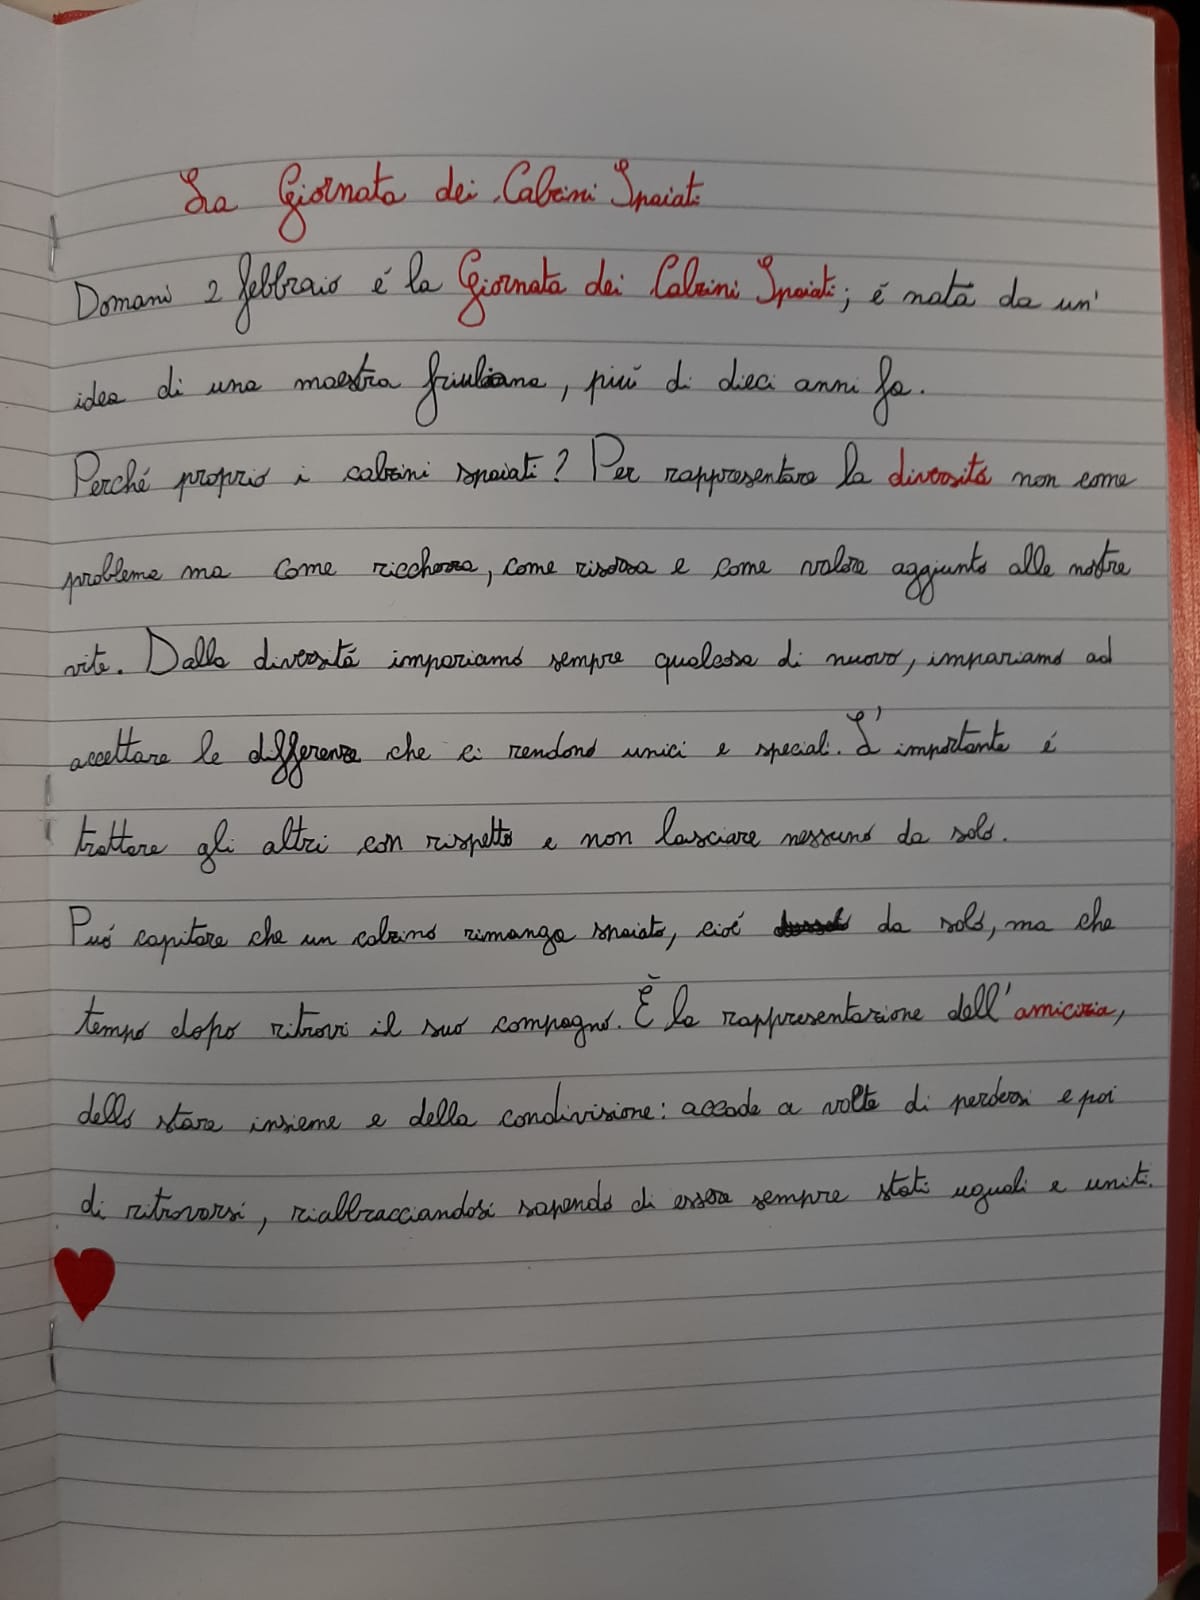 La Giornata dei Calzini Spaiati
Domani 2 febbraio é la Giornata dei Calzini Spaiati; é nata da un'
idea di una maestra friuliana, piú di dieci anni fa.
Perché proprio i calzini spaiati? Per rappresentare la diversitá non come
problema ma come ricchezza, come risorsa e come valore aggiunto alle nostre
vite. Dalla diversitá impariamo sempre qualcosa di nuovo, impariamo ad
accettare le differenze che ci rendono unici e speciali. L'importante é
trattare gli altri con rispetto e non lasciare nessuno da solo.
Puó capitare che un calzino rimanga spaiato, cioé da solo, ma che
tempo dopo ritrovi il suo compagno. È la rappresentazione dell'amicizia,
dello stare insieme e della condivisione: accade a volte di perdersi e poi
di ritrovarsi, riabbracciandosi sapendo di essere sempre stati uguali e uniti.